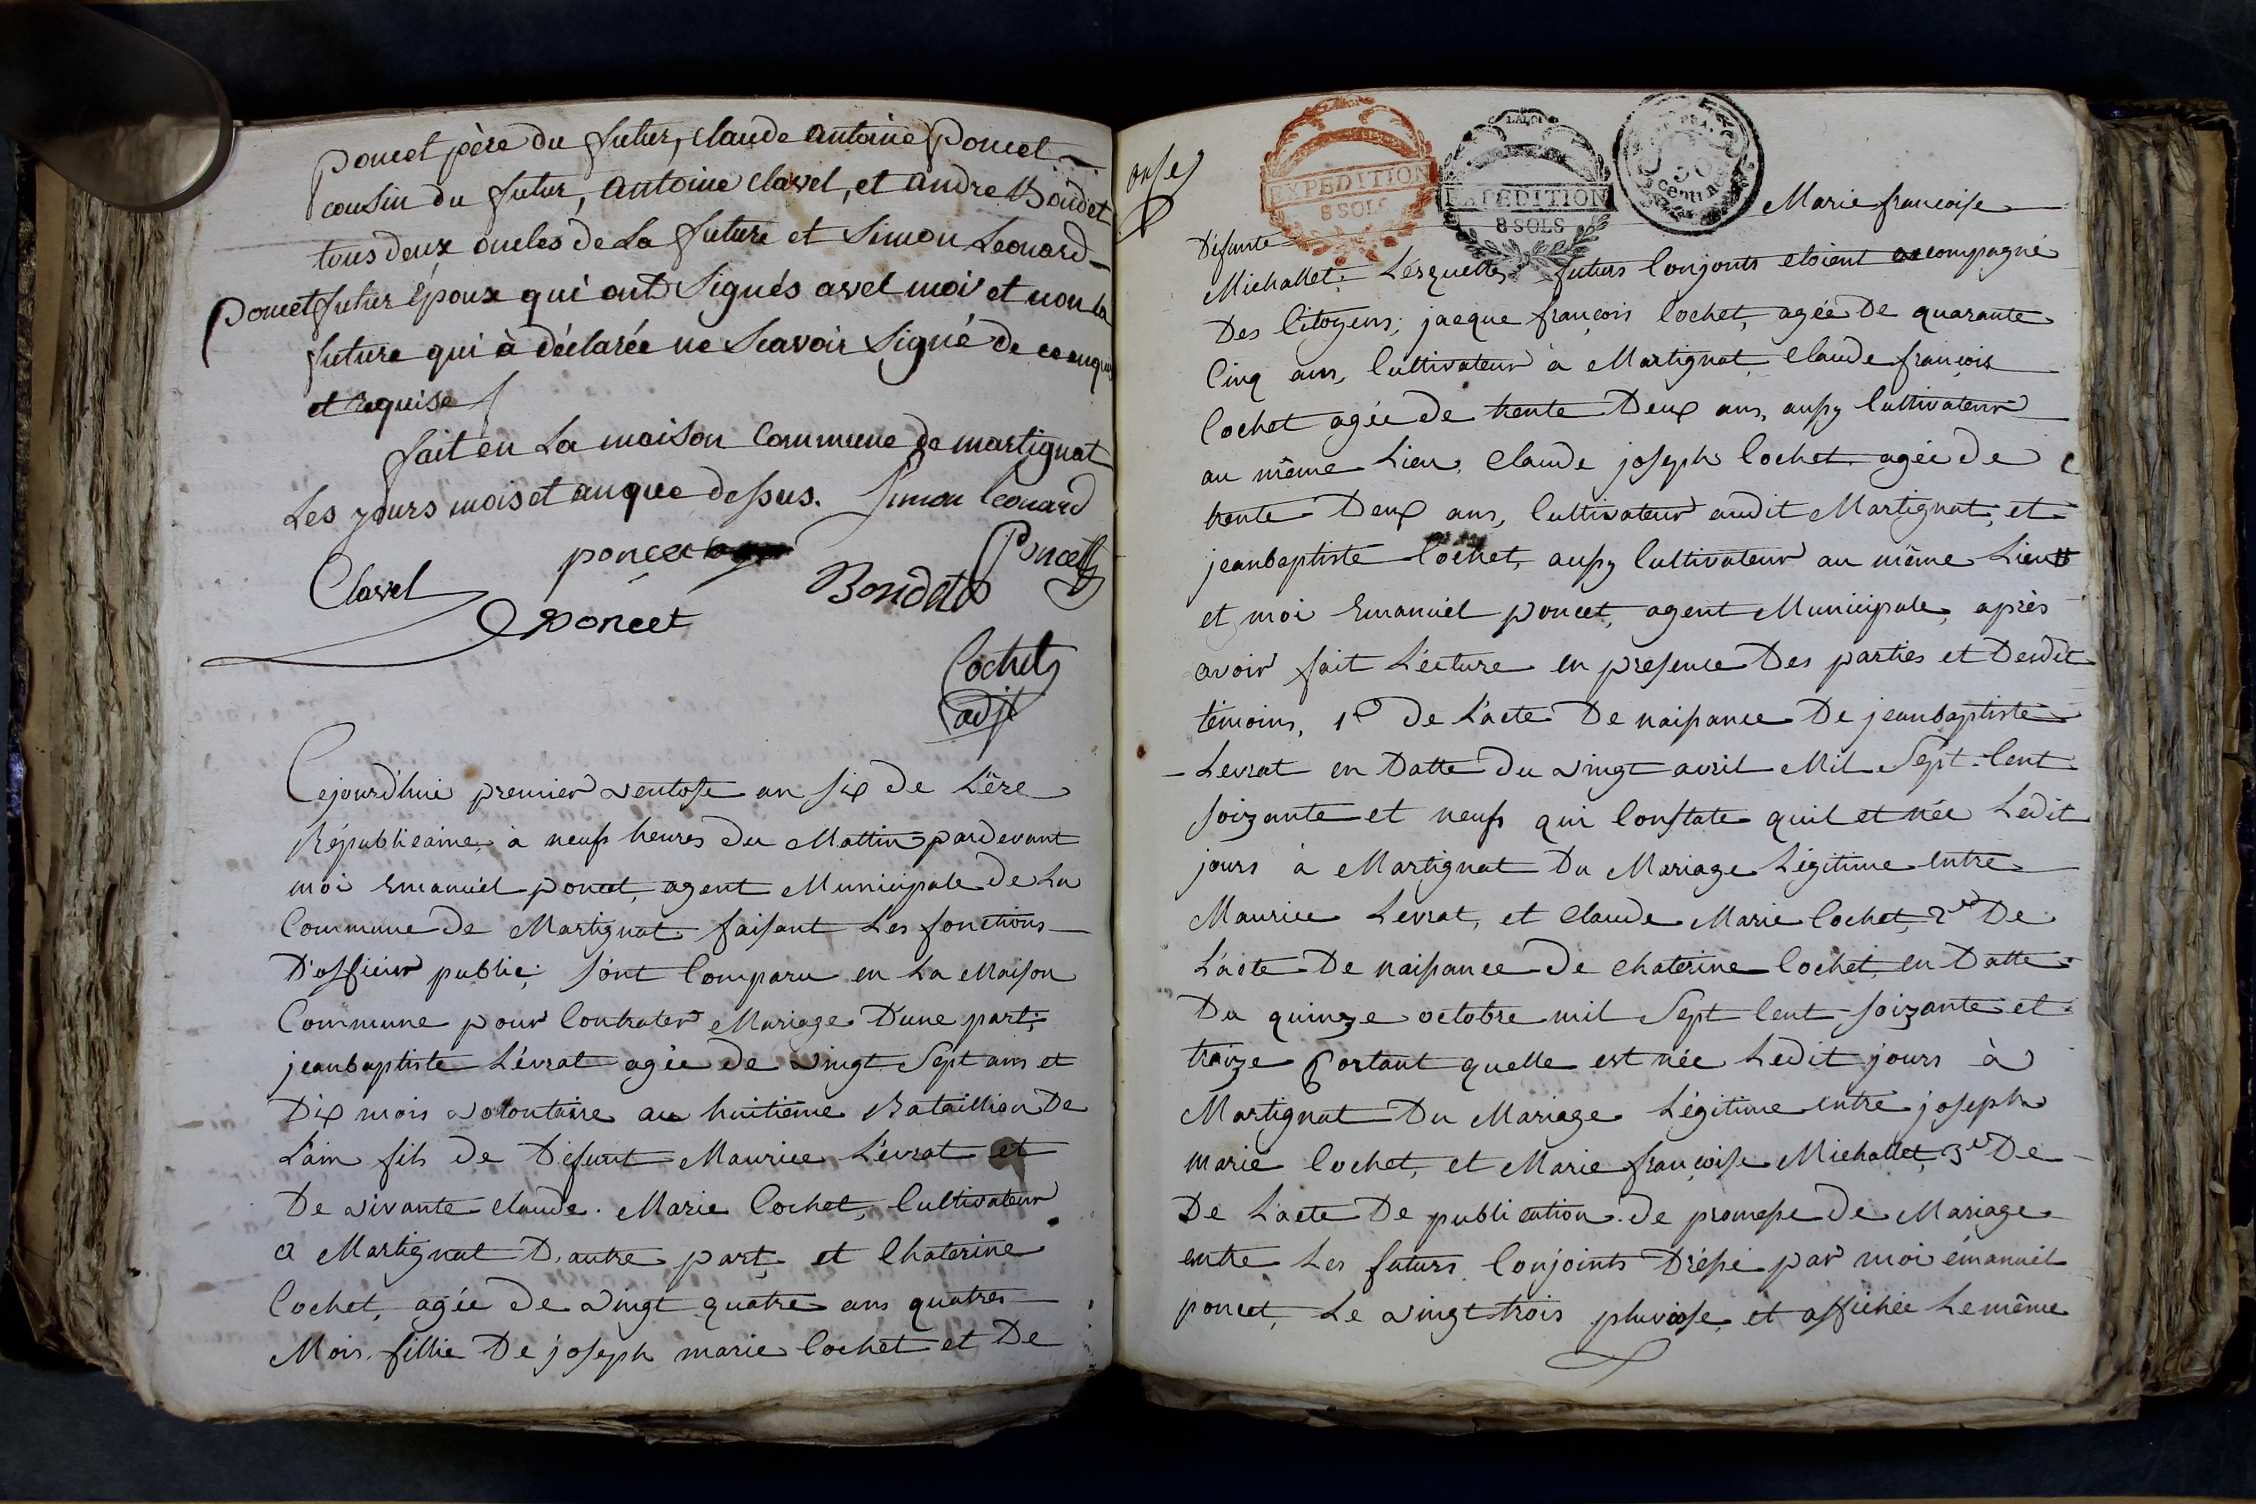 Poncet père du futur, claude antoine Poncet
cousin du futur, antoine clavel, et andre Bondet
tous deux oncles de La future et Simon Leonard
Poncet futur Epoux qui ont Signés avel moi et non la
future qui à déclarée ne Scavoir Signé de ce enquis
et requise
fait en La maison Commune de martignat
Les jours mois et an que dessus. Simon leonard
poncet
Poncet
Clavel
Bondet
Poncet
Cochet
adjt
Cejourd'hui premier ventose an six de L'ère
Républicaine, à neufs heures du Mattin pardevant
moi Emanuel poncet, agent Municipale de La
Commune de Martignat faisant Les fonctions
D'officier public; sont Comparu en La Maison
Commune pour Contrater Mariage D'une part;
jeanbaptiste Lévrat agée de vingt Sept ans et
Dix mois volontaire au huitième Bataillion De
L'ain fils de Défunt Maurice Lévrat et
De vivante claude Marie Cochet, Cultivateur
a Martignat D'autre part, et Chaterine
Cochet, agée de vingt quatre ans quatres
Mois, fillie De joseph marie Cochet et De
onze
EXPEDITION
8 SOLS
LA LOI
EXPEDITION
8 SOLS
50
CENTIM
Marie françoise
Défunte
Michallet; Lesquelles futurs Conjonts etoient accompagné
Des Citoyens; jacque françois Cochet, agée De quarante
Cinq ans, Cultivateur à Martignat, Claude françois
Cochet agée de trente Deux ans, aussy Cultivateur
au même Lieu, Claude joseph Cochet agée de
trente Deux ans, Cultivateur audit Martignat, et
jeanbaptiste Cochet, aussy Cultivateur au même Lieu
et moi Emanuel poncet, agent Municipale, après
avoir fait Lecture en presence Des parties et Desdit
témoins, 1º De L'acte De naissance De jeanbaptiste
Levrat en Datte du vingt avril Mil Sept Cent
soixante et neufs qui Constate quil et née Ledit
jours à Martignat Du Mariage Légitime entre
Maurice Levrat, et Claude Marie Cochet, 2º De
L'acte De naissance De Chaterine Cochet, en Datte
Du quinze octobre mil Sept Cent soixante et
treize Portant quelle est née Ledit jours à
Martignat Du Mariage Légitime entre joseph
marie Cochet, et Marie françoise Michallet, 3º De
De L'acte De publication de promesse De Mariage
entre Les futurs Conjoints Dréssé par moi émanuel
poncet, Le vingt trois pluviose, et affichée Le même